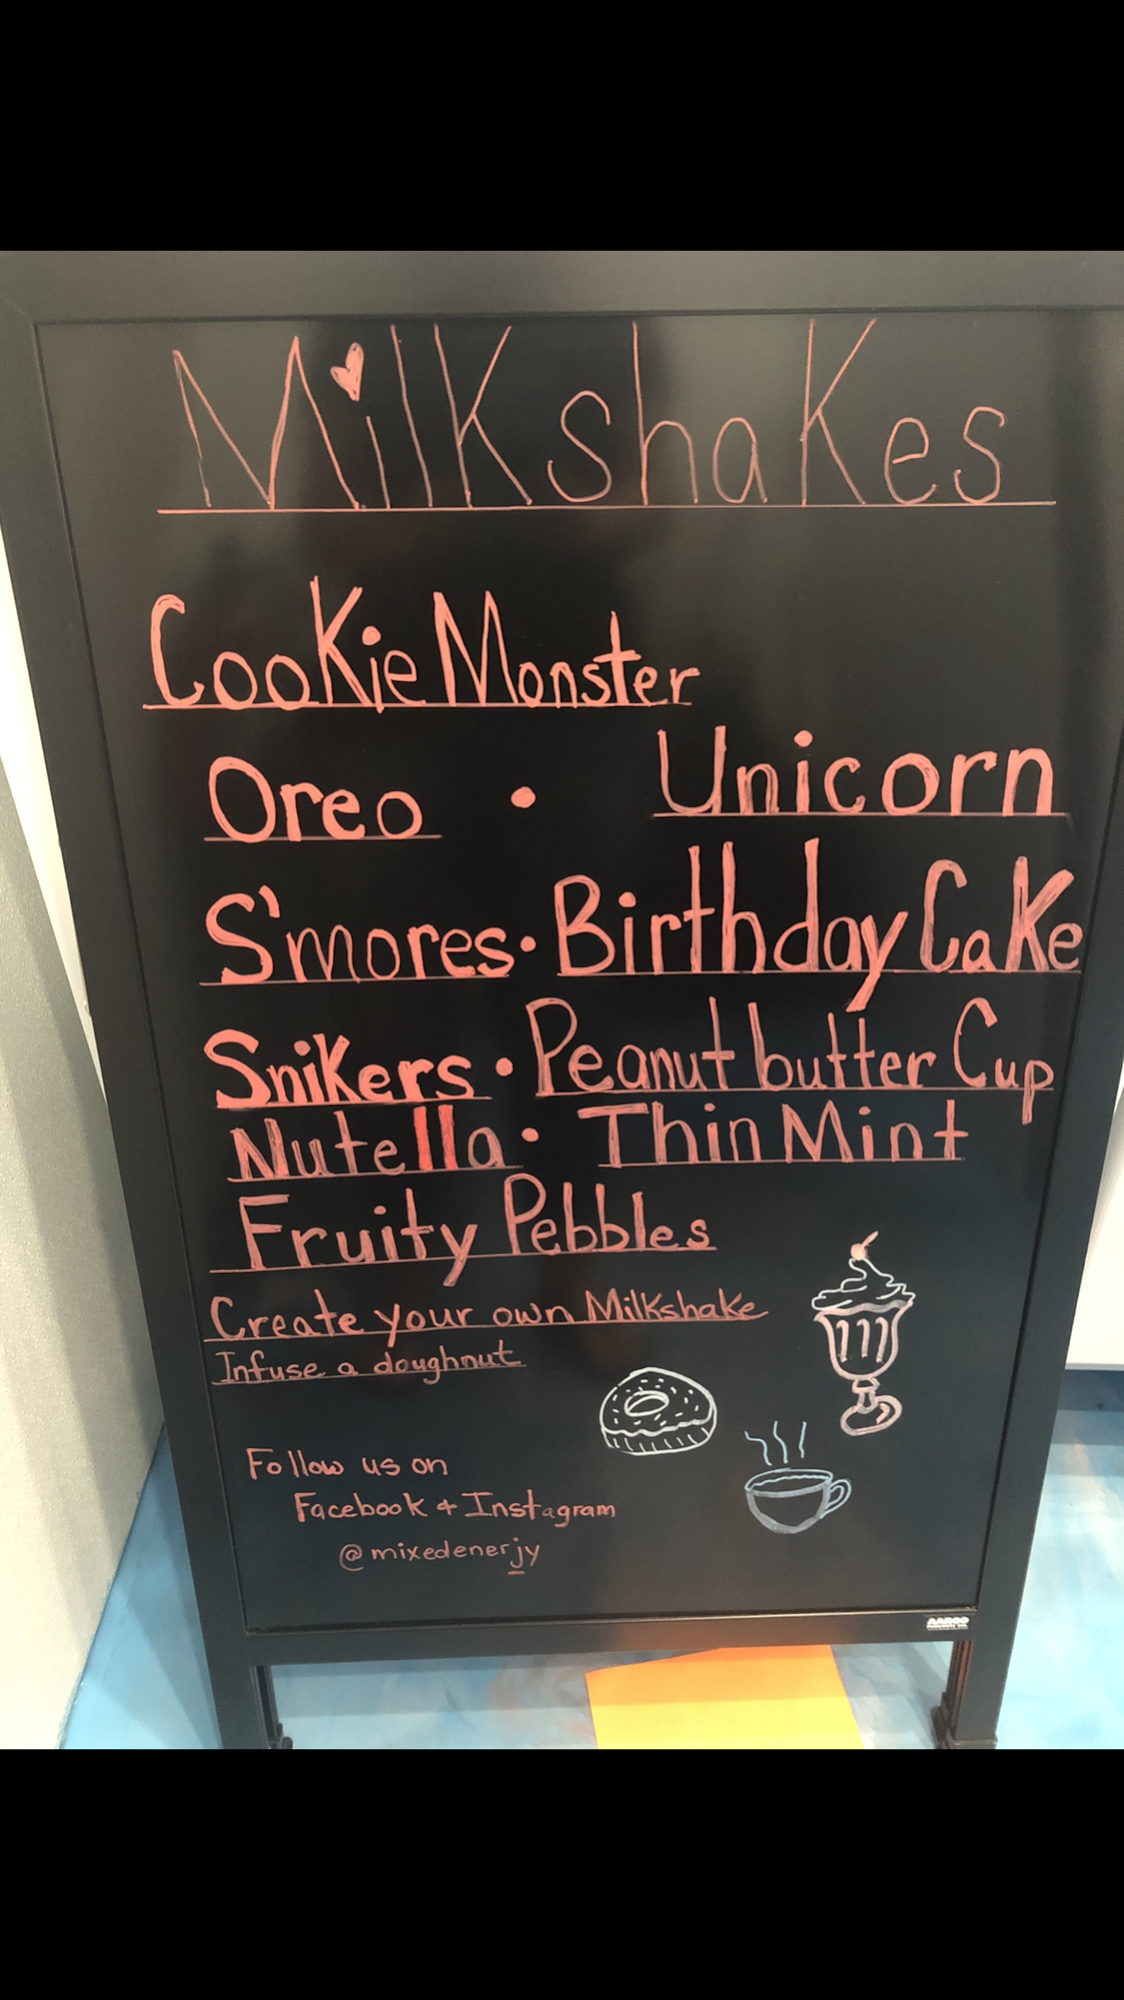 Milkshakes
Cookie Monster
Oreo • Unicorn
S'mores • Birthday Cake
Snikers • Peanut butter Cup
Nutella • Thin Mint
Fruity Pebbles
Create your own Milkshake
Infuse a doughnut
Follow us on
Facebook + Instagram
@mixedenerjy
AARCO